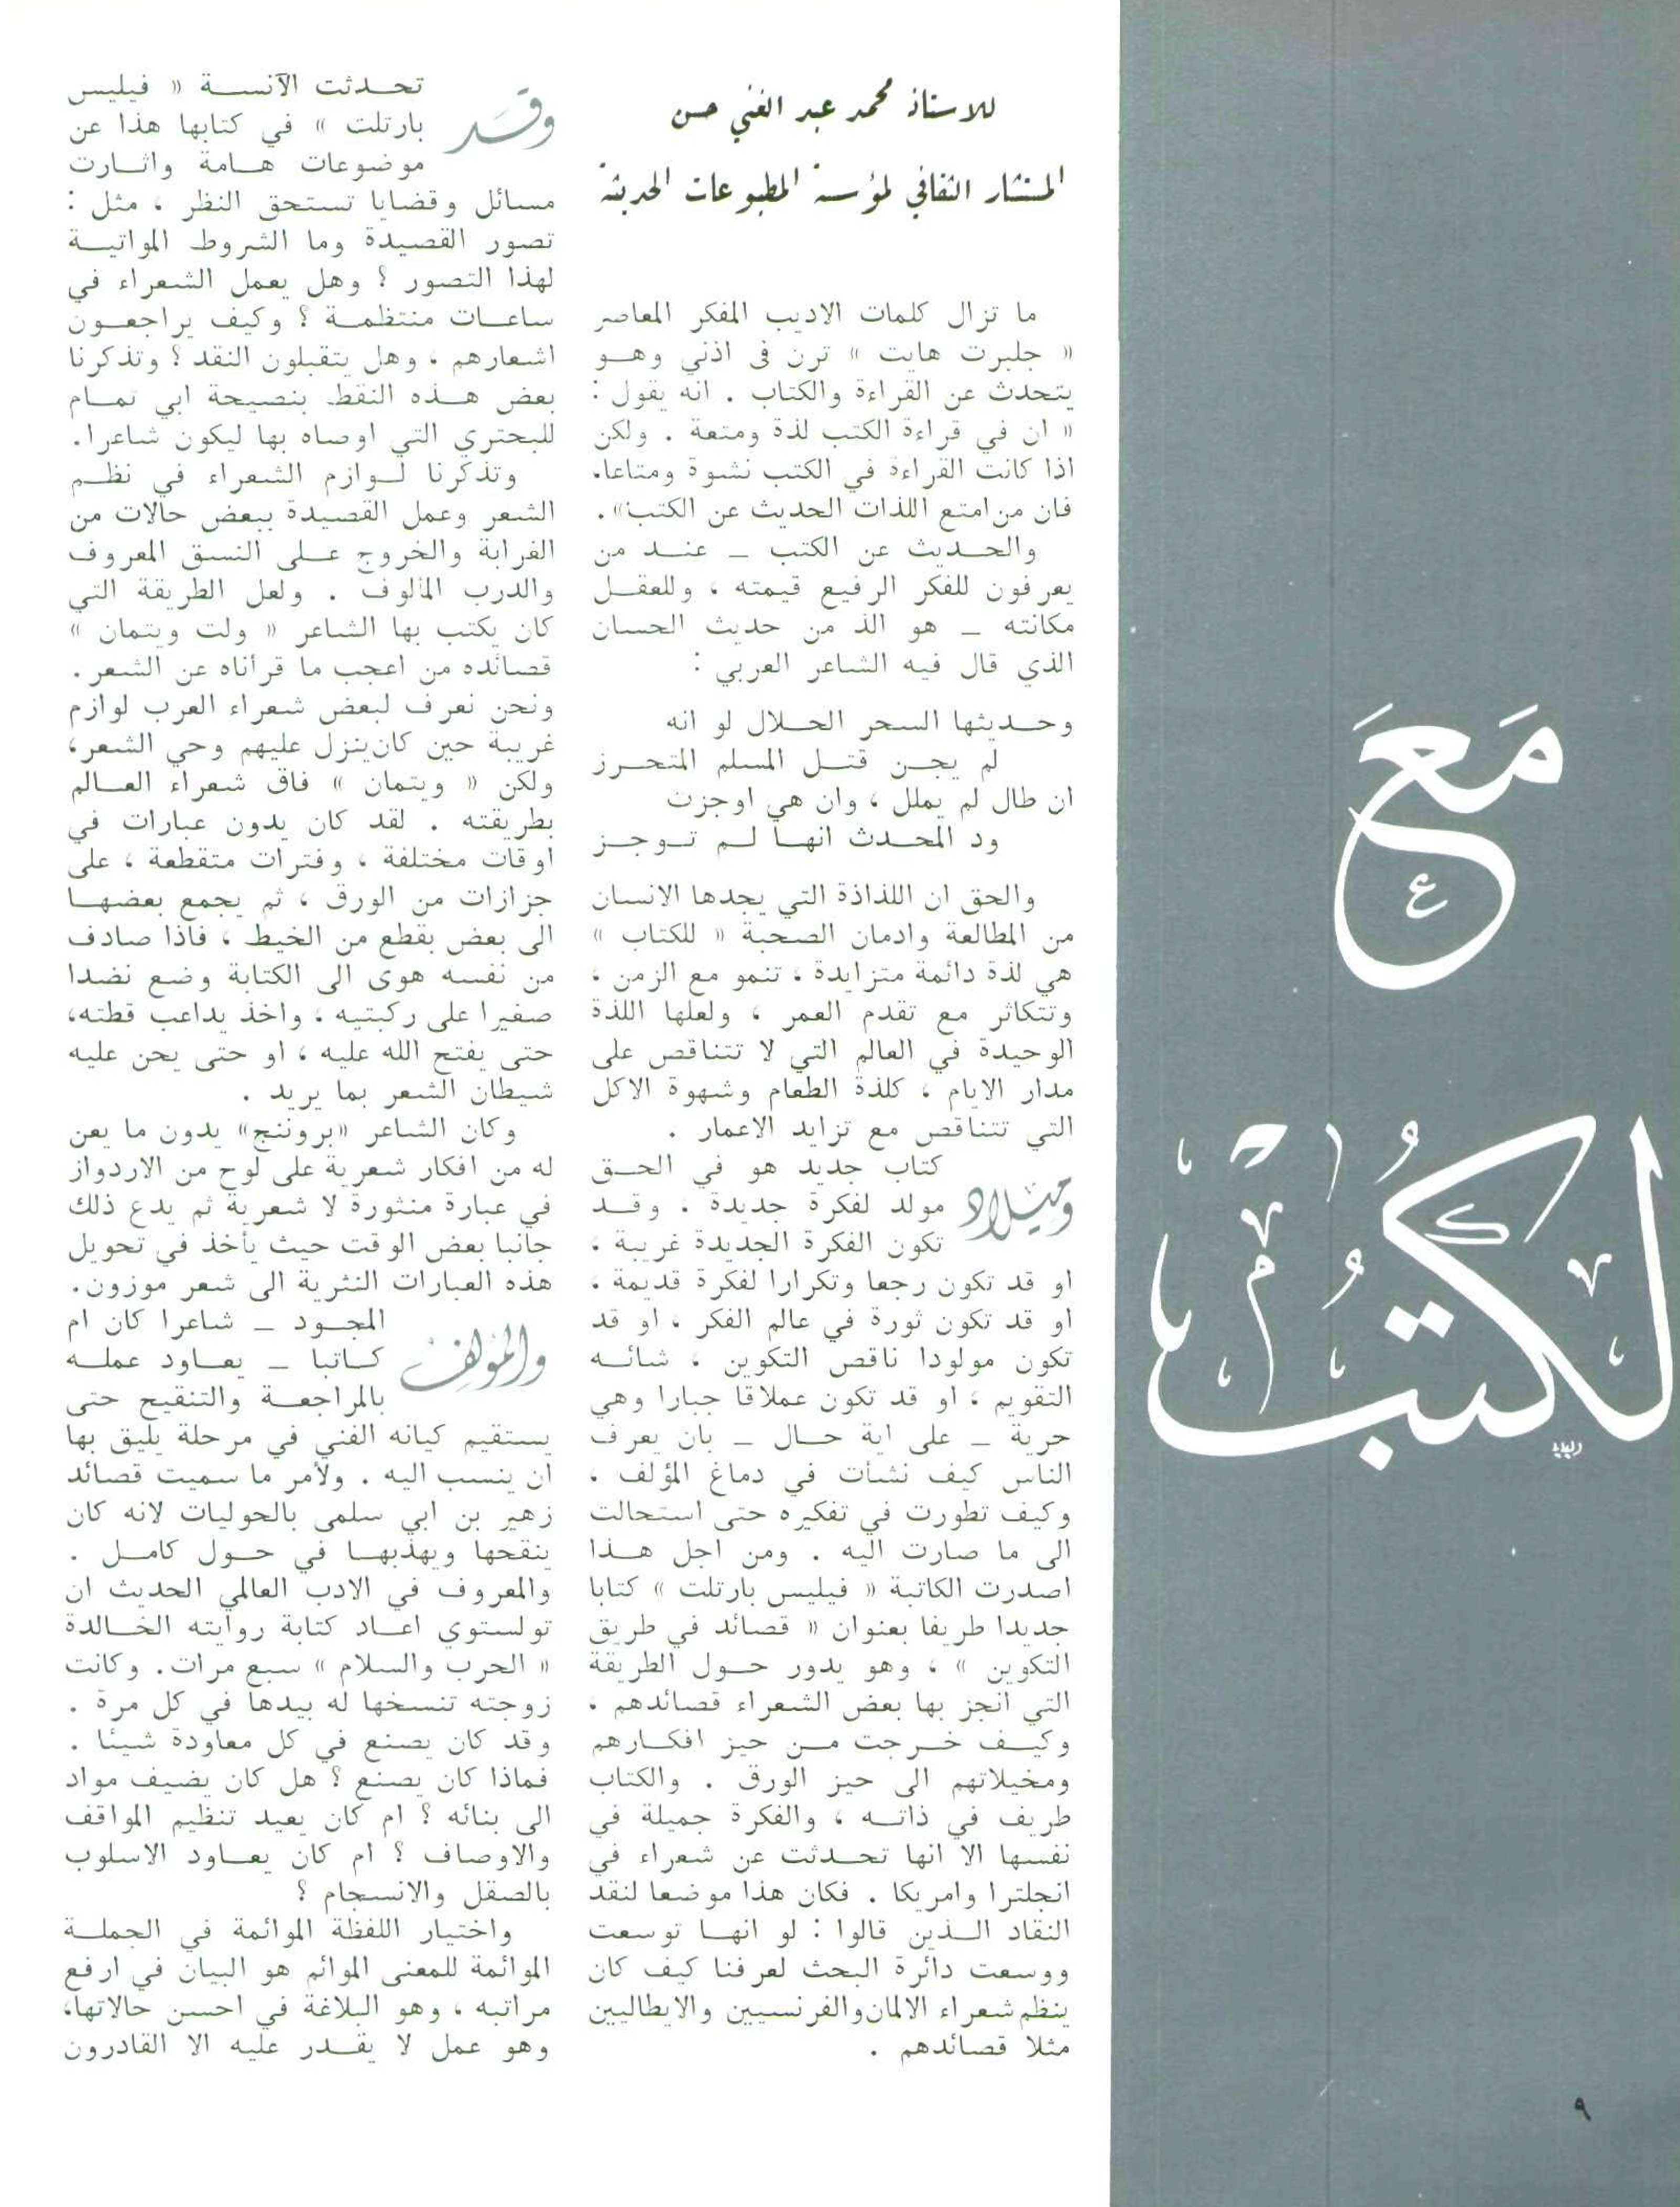 مَعَ
الكتُب
للاستاذ محمد عبد الغني حسن
المستشار الثقافي لمؤسسة المطبوعات الحديثة
ما تزال كلمات الاديب المفكر المعاصر
« جلبرت هايت » ترن فى اذني وهـو
يتحدث عن القراءة والكتاب . انه يقول :
« ان في قراءة الكتب لذة ومتعة . ولكن
اذا كانت القراءة في الكتب نشوة ومتاعا،
فان من امتع اللذات الحديث عن الكتب» .
والحـديث عن الكتب ــ عنـد من
يعرفون للفكر الرفيع قيمته ، وللعقـل
مكانته ــ هو الذ من حديث الحسان
الذي قال فيه الشاعر العربي :
وحـديثها السحر الحـلال لو انه
لم يجـن قتـل المسلم المتحـرز
ان طال لم يملل ، وان هي اوجزت
ود المحـدث انهـا لـم تـوجـز
والحق ان اللذاذة التي يجدها الانسان
من المطالعة وادمان الصحبة « للكتاب »
هي لذة دائمة متزايدة ، تنمو مع الزمن ،
وتتكاثر مع تقدم العمر ، ولعلها اللذة
الوحيدة في العالم التي لا تتناقص على
مدار الايام ، كلذة الطعام وشهوة الاكل
التي تتناقص مع تزايد الاعمار .
وميلاد كتاب جديد هو في الحـق
مولد لفكرة جديدة . وقـد
تكون الفكرة الجديدة غريبة ،
او قد تكون رجعا وتكرارا لفكرة قديمة ،
او قد تكون ثورة في عالم الفكر ، او قد
تكون مولودا ناقص التكوين ، شائـه
التقويم ، او قد تكون عملاقا جبارا وهي
حرية ــ على اية حـال ــ بان يعرف
الناس كيف نشأت في دماغ المؤلف ،
وكيف تطورت في تفكيره حتى استحالت
الى ما صارت اليه . ومن اجل هـذا
اصدرت الكاتبة « فيليس بارتلت » كتابا
جديدا طريفا بعنوان « قصائد في طريق
التكوين » ، وهو يدور حـول الطريقة
التي انجز بها بعض الشعراء قصائدهم ،
وكيـف خـرجت مـن حيز افكـارهم
ومخيلاتهم الى حيز الورق . والكتاب
طريف في ذاتـه ، والفكرة جميلة في
نفسها الا انها تحـدثت عن شعراء في
انجلترا وامريكا . فكان هذا موضعا لنقد
النقاد الـذين قالوا : لو انهـا توسعت
ووسعت دائرة البحث لعرفنا كيف كان
ينظم شعراء الالمان والفرنسيين والايطاليين
مثلا قصائدهم .
وقَد تحـدثت الآنسـة « فيليس
بارتلت » في كتابها هذا عن
موضوعات هـامة واثـارت
مسائل وقضايا تستحق النظر ، مثل :
تصور القصيدة وما الشروط المواتيـة
لهذا التصور ؟ وهل يعمل الشعراء في
ساعـات منتظمـة ؟ وكيف يراجعـون
اشعارهم ، وهل يتقبلون النقد ؟ وتذكرنا
بعض هـذه النقط بنصيحة ابي تمـام
للبحتري التي اوصاه بها ليكون شاعرا.
وتذكرنا لـوازم الشعراء في نظـم
الشعر وعمل القصيدة ببعض حالات من
الغرابة والخروج عـلى النسق المعروف
والدرب المألوف . ولعل الطريقة التي
كان يكتب بها الشاعر « ولت ويتمان »
قصائده من اعجب ما قرأناه عن الشعر .
ونحن نعرف لبعض شعراء العرب لوازم
غريبة حين كان ينزل عليهم وحي الشعر،
ولكن « ويتمان » فاق شعراء العـالم
بطريقته . لقد كان يدون عبارات في
اوقات مختلفة ، وفترات متقطعة ، على
جزازات من الورق ، ثم يجمع بعضهـا
الى بعض بقطع من الخيط ، فاذا صادف
من نفسه هوى الى الكتابة وضع نضدا
صغيرا على ركبتيه ، واخذ يداعب قطته،
حتى يفتح الله عليه ، او حتى يحن عليه
شيطان الشعر بما يريد .
وكان الشاعر «بروننج» يدون ما يعن
له من افكار شعرية على لوح من الاردواز
في عبارة منثورة لا شعرية ثم يدع ذلك
جانبا بعض الوقت حيث يأخذ في تحويل
هذه العبارات النثرية الى شعر موزون.
والمؤلف المجـود ــ شاعرا كان ام
كـاتبا ــ يعـاود عملـه
بالمراجعـة والتنقيح حتى
يستقيم كيانه الفني في مرحلة يليق بها
ان ينسب اليه . ولأمر ما سميت قصائد
زهير بن ابي سلمى بالحوليات لانه كان
ينقحها ويهذبهـا في حـول كامـل .
والمعروف في الادب العالمي الحديث ان
تولستوي اعـاد كتابة روايته الخـالدة
« الحرب والسلام » سبع مرات. وكانت
زوجته تنسخها له بيدها في كل مرة .
وقد كان يصنع في كل معاودة شيئا .
فماذا كان يصنع ؟ هل كان يضيف مواد
الى بنائه ؟ ام كان يعيد تنظيم المواقف
والاوصاف ؟ ام كان يعـاود الاسلوب
بالصقل والانسجام ؟
واختيار اللفظة الموائمة في الجملـة
الموائمة للمعنى الموائم هو البيان في ارفع
مراتبه ، وهو البلاغة في احسن حالاتها،
وهو عمل لا يقـدر عليه الا القادرون
٩